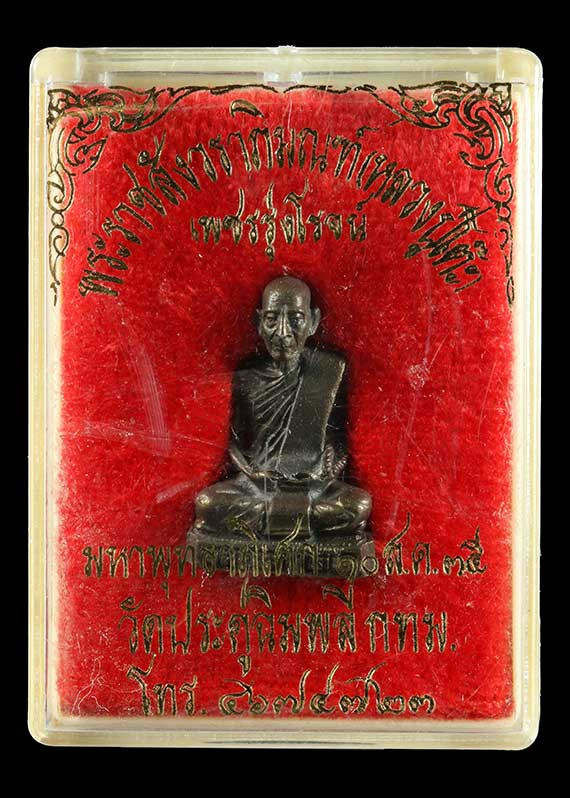 พระราชสังวราภิมณฑ์(หลวงปู่โต๊ะ)
เพชรรุ่งโรจน์
มหาพุทธาภิเศก ๑๐ ส.ค. ๓๕
วัดประดู่ฉิมพลี กทม.
โทร. ๔๖๗๔๗๒๓